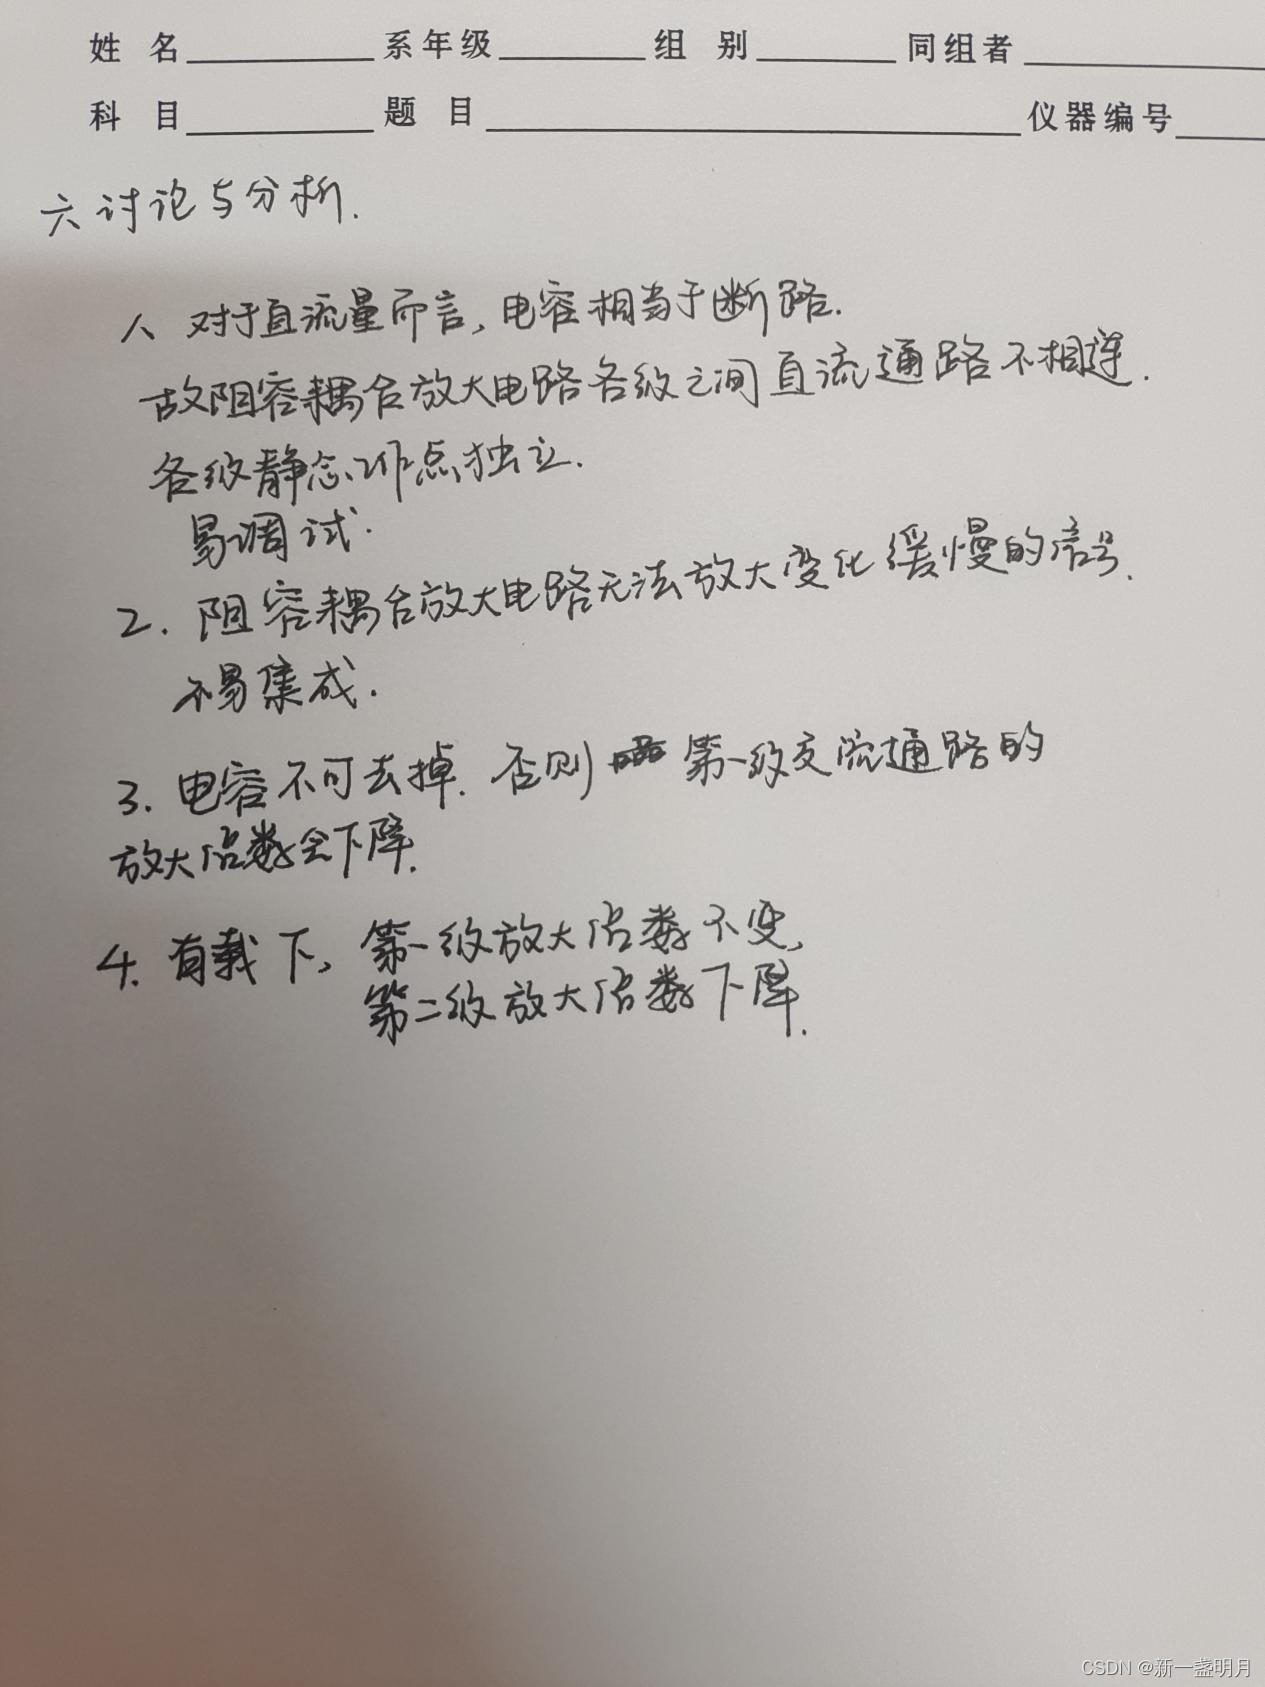 姓 名 系年级 组 别 同组者
科 目 题 目 仪器编号
六 讨论与分析.
1、对于直流量而言，电容相当于断路.
故阻容耦合放大电路各级之间直流通路不相连.
各级静态工作点独立.
易调试.
2. 阻容耦合放大电路无法放大变化缓慢的信号.
不易集成.
3. 电容不可去掉. 否则 第一级交流通路的
放大倍数会下降.
4. 有载下，第一级放大倍数不变，
第二级放大倍数下降.
CSDN @新一盏明月